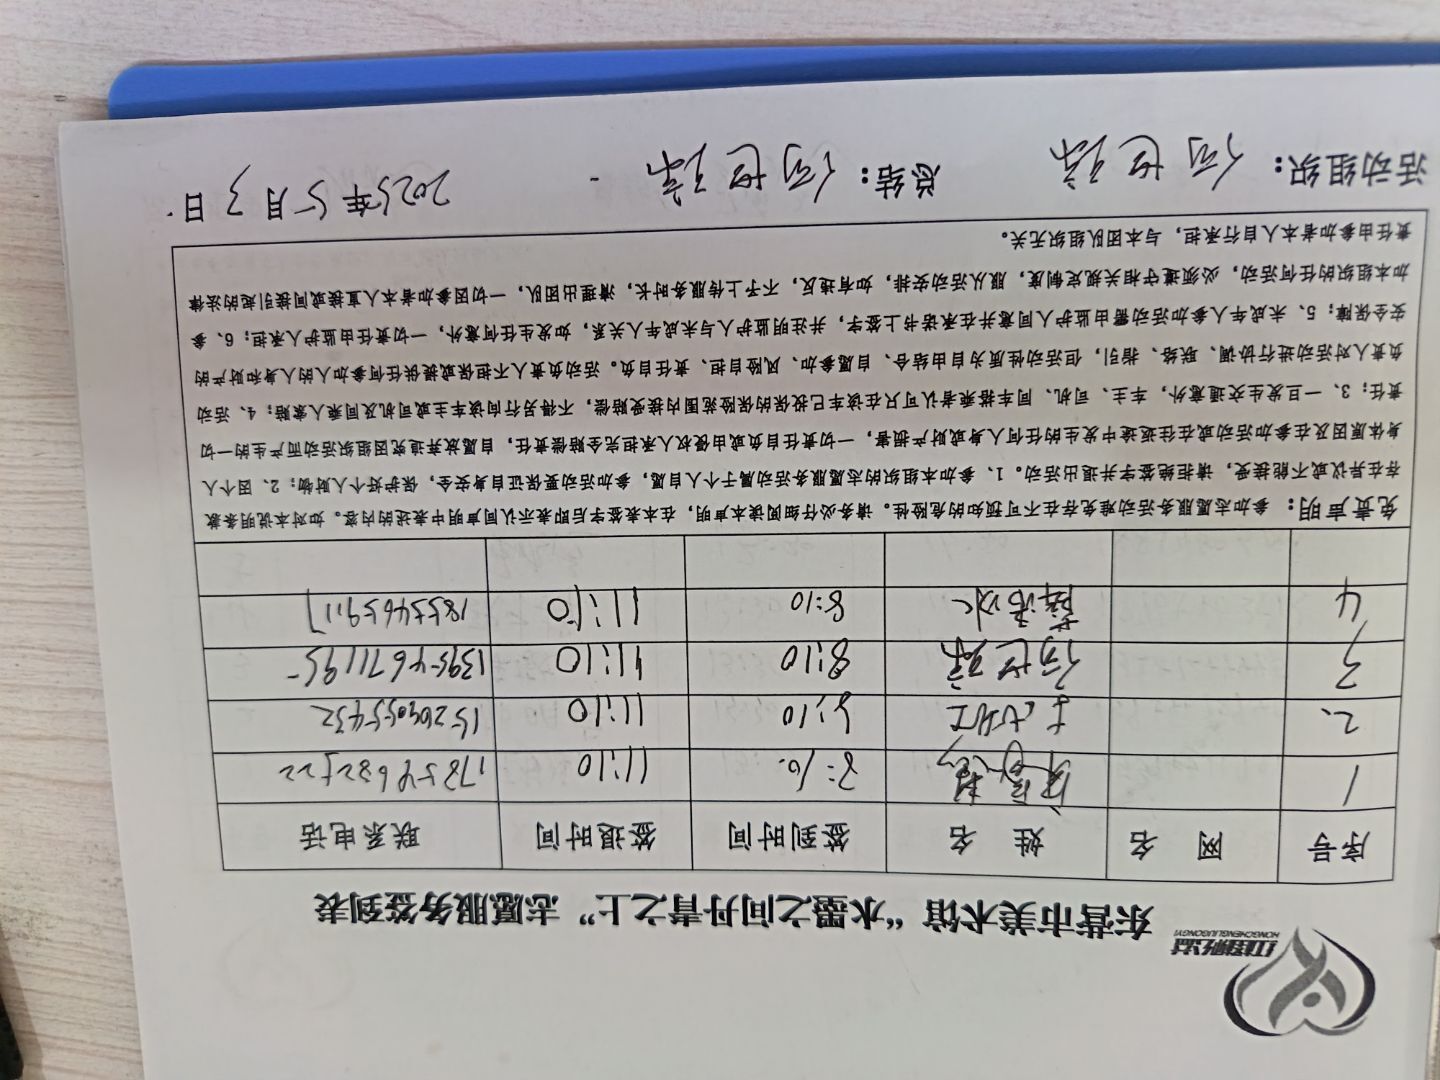 HONGCHENGLIUGONGYI
东营市美术馆“水墨之间丹青之上”志愿服务签到表
序号 网 名 姓 名 签到时间 签退时间 联系电话
1 8:10. 11:10
2、 8:10 11:10 15269055432
3 何世璟 8:10 11:10 13954671195
4 薛洁冰 8:10 11:10 18554659117
免责声明：参加志愿服务活动难免存在不可预知的危险性。请务必仔细阅读本声明，在本表签字后即表示认同声明中表述的内容。如对本说明条款
存在异议或不能接受，请拒绝签字并退出活动。1、参加本组织的志愿服务活动属于个人自愿，参加活动要保证自身安全，保护好个人财物；2、因个人
身体原因及在参加活动或在往返途中发生的任何人身或财产损害，一切责任自负或由侵权人承担完全赔偿责任，自愿放弃追究因组织活动而产生的一切
责任；3、一旦发生交通意外，车主、司机、同车搭乘者认可只在该车已投保的保险范围内接受赔偿，不得另行向该车主或司机及同乘人索赔；4、活动
负责人对活动进行协调、联络、指引，但活动性质为自由结合、自愿参加、风险自担、责任自负。活动负责人不担保或提供任何参加人的人身和财产的
安全保障；5、未成年人参加活动需由监护人同意并在承诺书上签字，并注明监护人与未成年人关系，如发生任何意外，一切责任由监护人承担；6、参
加本组织的任何活动，必须遵守相关规定制度，服从活动安排，如有违反，不予上传服务时长，清理出团队，一切因参加者本人直接或间接引起的法律
责任由参加者本人自行承担，与本团队组织无关。
活动组织：何世璟 总结：何世璟 2025年5月3日